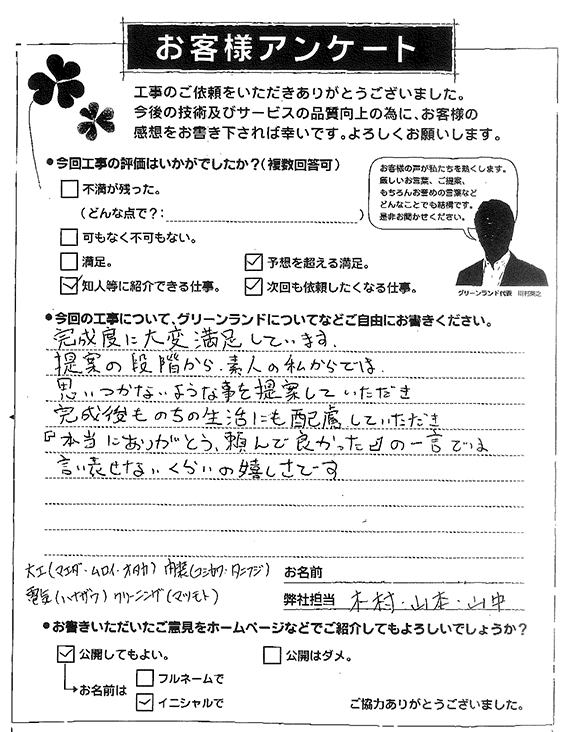 お客様アンケート
工事のご依頼をいただきありがとうございました。
今後の技術及びサービスの品質向上の為に、お客様の
感想をお書き下されば幸いです。よろしくお願いします。
●今回工事の評価はいかがでしたか?(複数回答可)
不満が残った。
(どんな点で?: )
可もなく不可もない。
満足。
予想を超える満足。
知人等に紹介できる仕事。
次回も依頼したくなる仕事。
お客様の声が私たちを熱くします。
厳しいお言葉、ご提案、
もちろんお誉めの言葉など
どんなことでも結構です。
是非お聞かせください。
グリーンランド代表
●今回の工事について、グリーンランドについてなどご自由にお書きください。
完成度に大変満足しています。
提案の段階から、素人の私からでは、
思いつかないような事を提案していただき
完成後ものちの生活にも配慮していただき
『本当にありがとう、頼んで良かった』の一言では
言い表せないくらいの嬉しさです
大工(マエダ・ムロイ・オタカ) 内装(コシカワ・タニフジ)
電気(ハヤザワ) クリーニング(マツモト)
お名前
弊社担当 木村・山本・山中
●お書きいただいたご意見をホームページなどでご紹介してもよろしいでしょうか?
公開してもよい。
公開はダメ。
お名前は
フルネームで
イニシャルで
ご協力ありがとうございました。